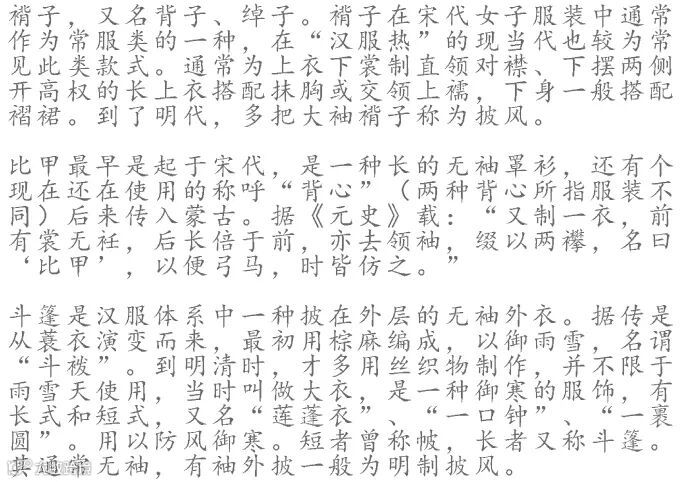 褙子，又名背子、绰子。褙子在宋代女子服装中通常
作为常服类的一种，在“汉服热”的现当代也较为常
见此类款式。通常为上衣下裳制直领对襟、下摆两侧
开高权的长上衣搭配抹胸或交领上襦，下身一般搭配
褶裙。到了明代，多把大袖褙子称为披风。
比甲最早是起于宋代，是一种长的无袖罩衫，还有个
现在还在使用的称呼“背心”（两种背心所指服装不
同）后来传入蒙古。据《元史》载：“又制一衣，前
有裳无衽，后长倍于前，亦去领袖，缀以两襻，名曰
‘比甲’，以便弓马，时皆仿之。”
斗篷是汉服体系中一种披在外层的无袖外衣。据传是
从蓑衣演变而来，最初用棕麻编成，以御雨雪，名谓
“斗袯”。到明清时，才多用丝织物制作，并不限于
雨雪天使用，当时叫做大衣，是一种御寒的服饰，有
长式和短式，又名“莲蓬衣”、“一口钟”、“一裹
圆”。用以防风御寒。短者曾称帔，长者又称斗篷。
其通常无袖，有袖外披一般为明制披风。